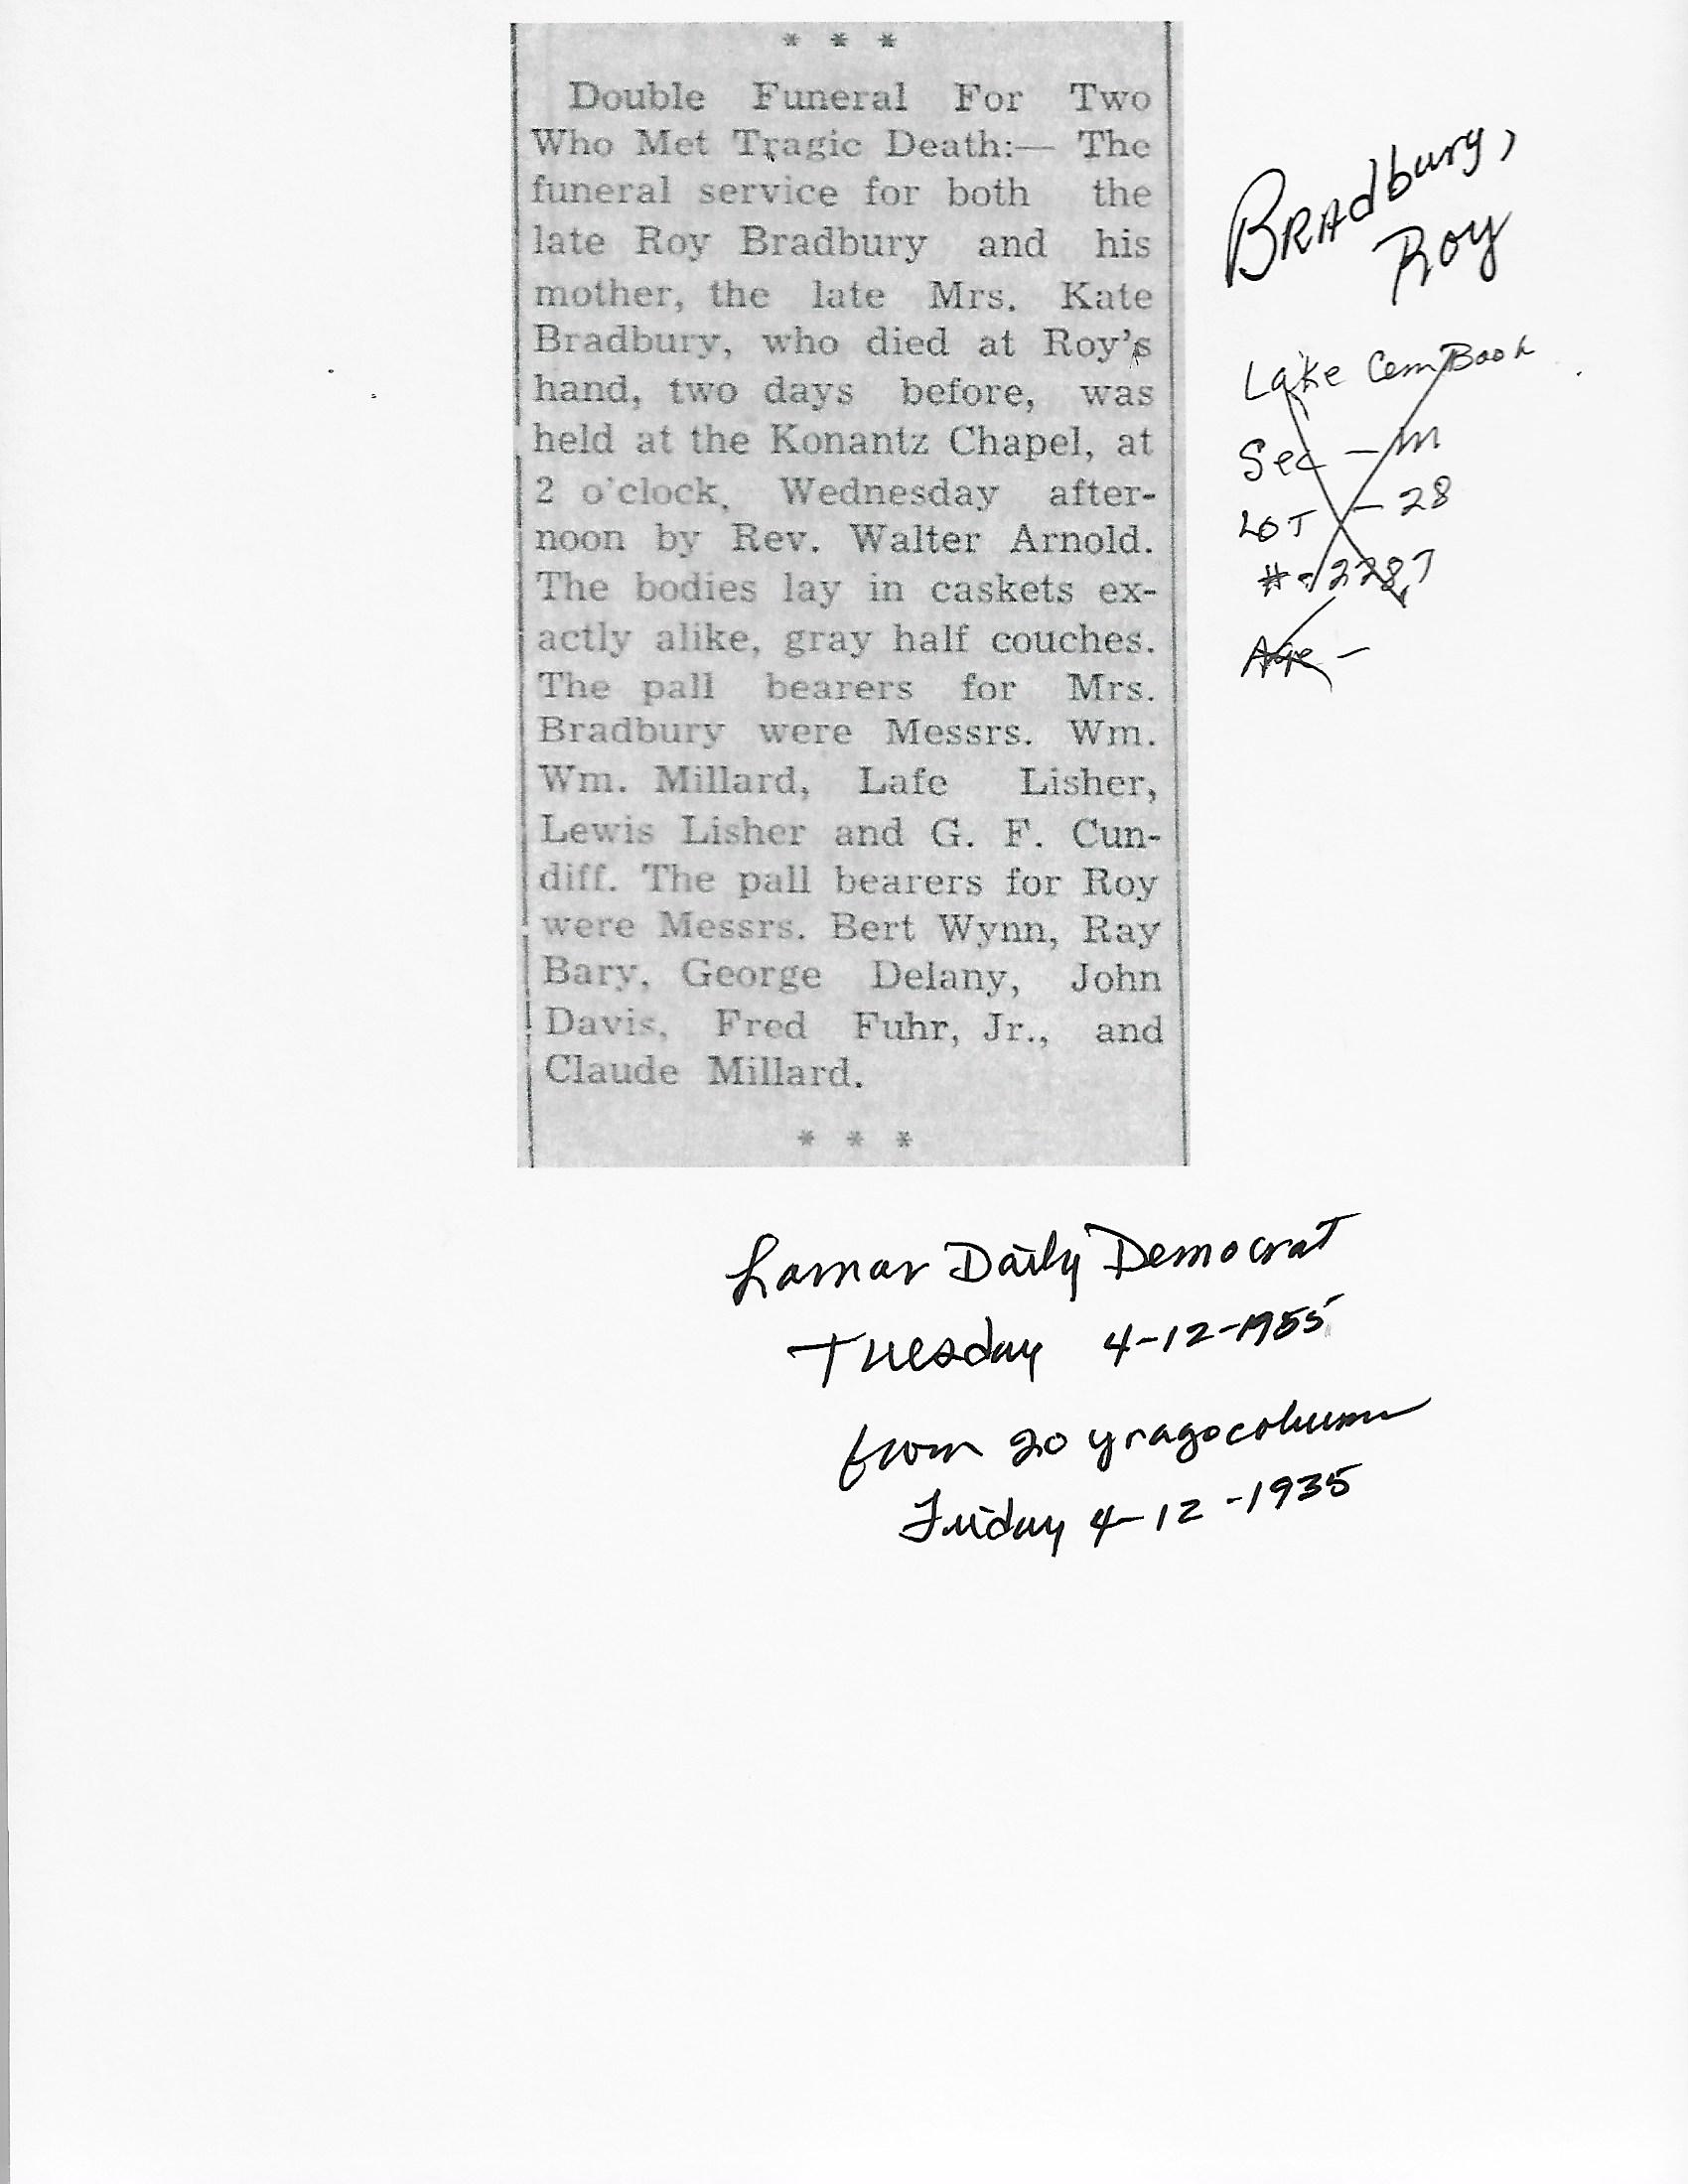 * * *
Double Funeral For Two
Who Met Tragic Death:— The
funeral service for both the
late Roy Bradbury and his
mother, the late Mrs. Kate
Bradbury, who died at Roy's
hand, two days before, was
held at the Konantz Chapel, at
2 o'clock, Wednesday after-
noon by Rev. Walter Arnold.
The bodies lay in caskets ex-
actly alike, gray half couches.
The pall bearers for Mrs.
Bradbury were Messrs. Wm.
Wm. Millard, Lafe Lisher,
Lewis Lisher and G. F. Cun-
diff. The pall bearers for Roy
were Messrs. Bert Wynn, Ray
Bary, George Delany, John
Davis, Fred Fuhr, Jr., and
Claude Millard.
* * *
BRAdbury,
Roy
Lake Cem Book
Sec - M
LOT - 28
#
Age -
Lamar Daily Democrat
Tuesday 4-12-1955
from 20 yr ago column
Friday 4-12-1935